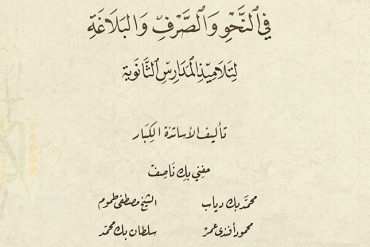 فِي النَّحْوِ وَالصَّرْفِ وَالْبَلَاغَةِ
لِتَلَامِيذِ الْمَدَارِسِ الثَّانَوِيَّة
تأليف الأساتذة الكِبَار
حفني بك نَاصِفْ
محمّد بك دياب الشيخ مصطفى طموم
محمود أفندى عمرْ سلطان بك محمّد